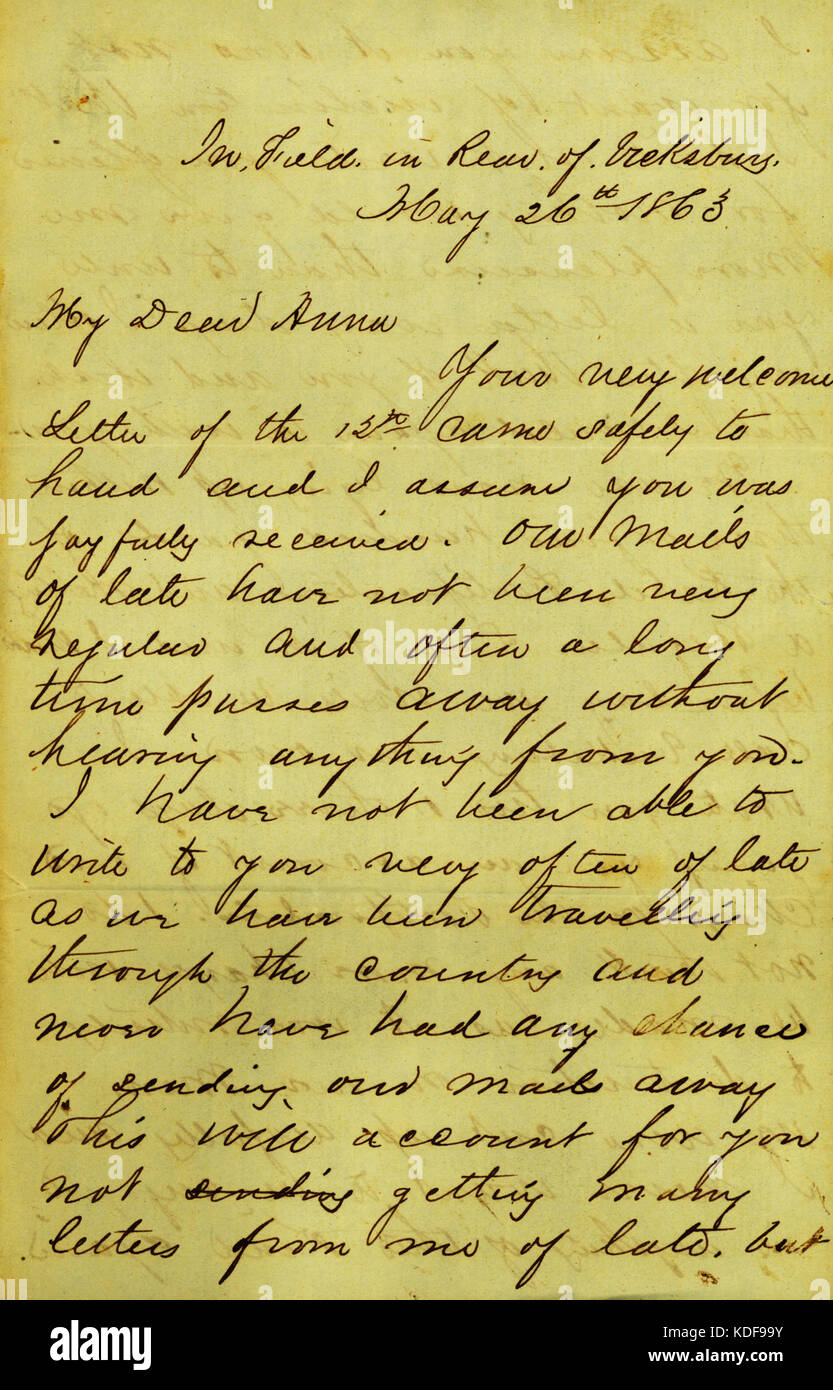 In, Field. in Rear. of. Vicksburg.
May 26th 1863
My Dear Anna
Your very welcome
Letter of the 12th came safely to
hand and I assure you was
joyfully received. Our Mails
of late have not been very
regular and often a long
time passes away without
hearing anything from you.
I have not been able to
write to you very often of late
as we have been travelling
through the country and
never have had any chance
of sending our mails away
This will account for you
not sending getting many
letters from me of late. but
alamy
Image ID: KDF99Y
www.alamy.com